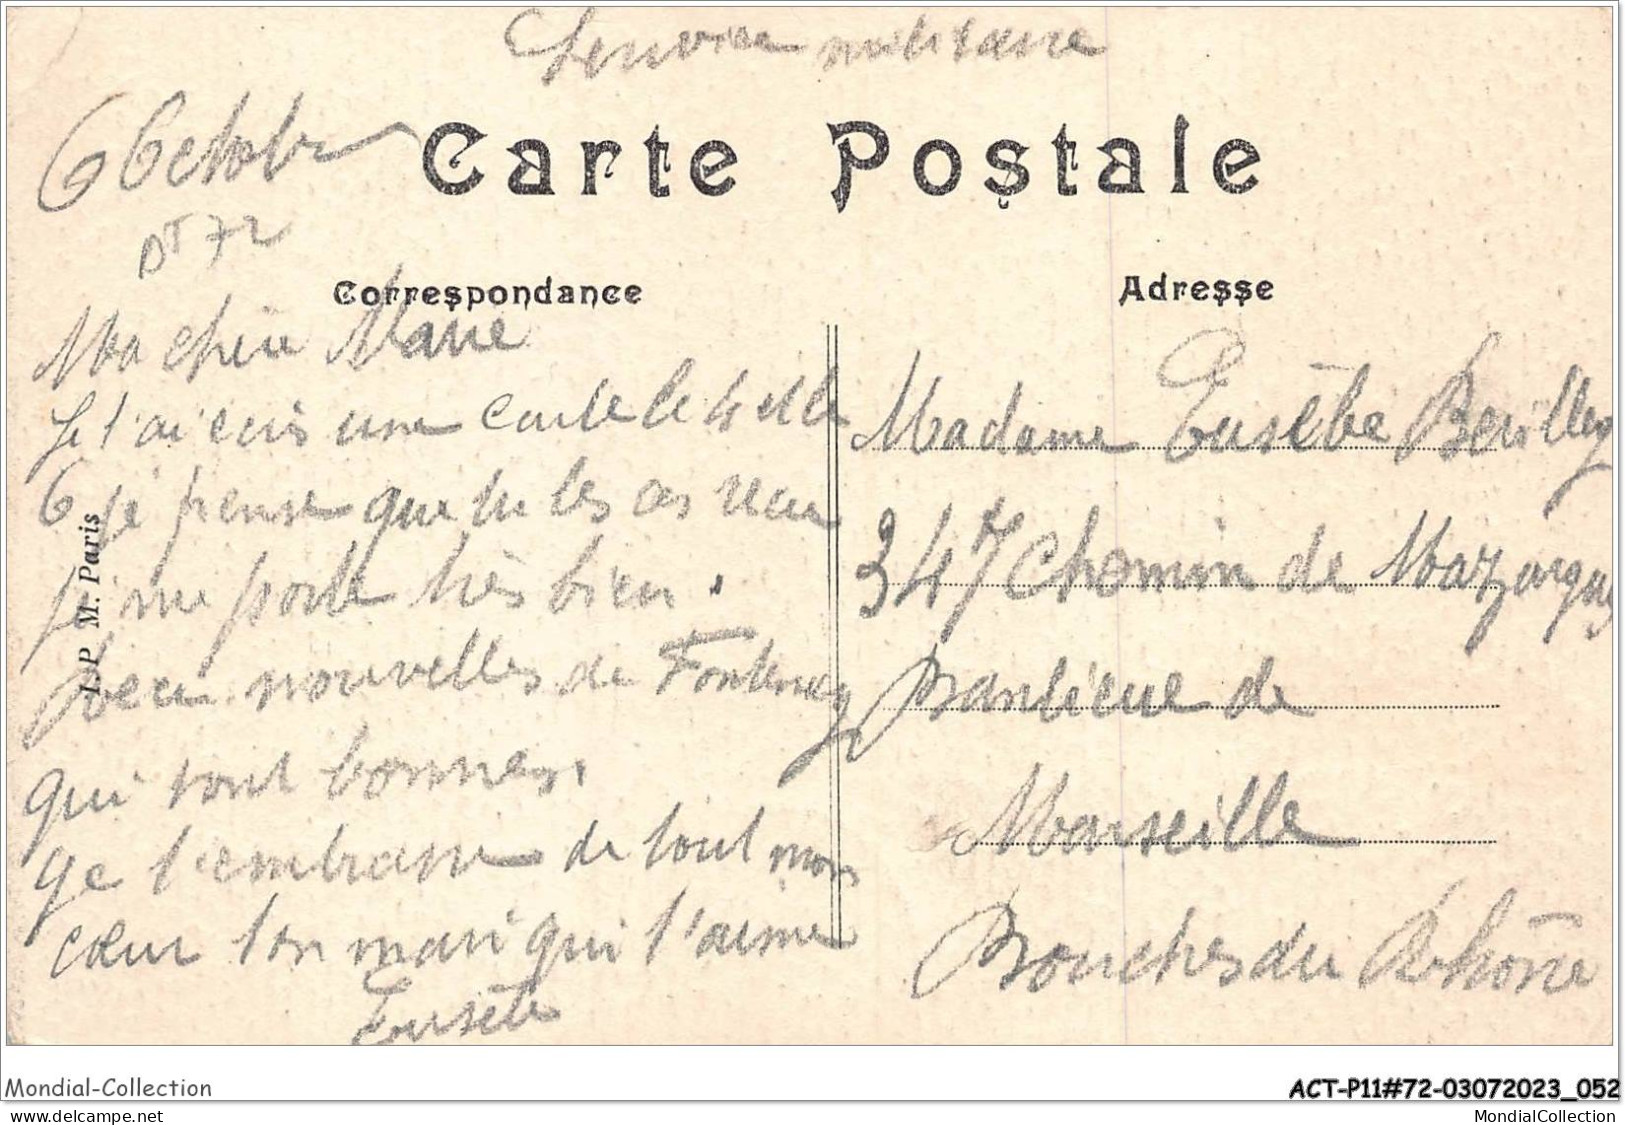 Service militaire
6 Octobre
Carte Postale
DT 72
Correspondance
Adresse
Ma chère Marie
Je t'ai écris une carte le 4 et le
6 je pense que tu les as reçu
je me porte très bien.
Reçu nouvelles de Fontenay
qui sont bonnes.
Je t'embrasse de tout mon
cœur ton mari qui t'aime
Eusèbe
Madame Eusèbe
347 Chemin de Mazargues
Banlieue de
Marseille
Bouches du Rhône
I.P M. Paris
Mondial-Collection
ACT-P11#72-03072023_052
www.mondialcollection.net
MondialCollection